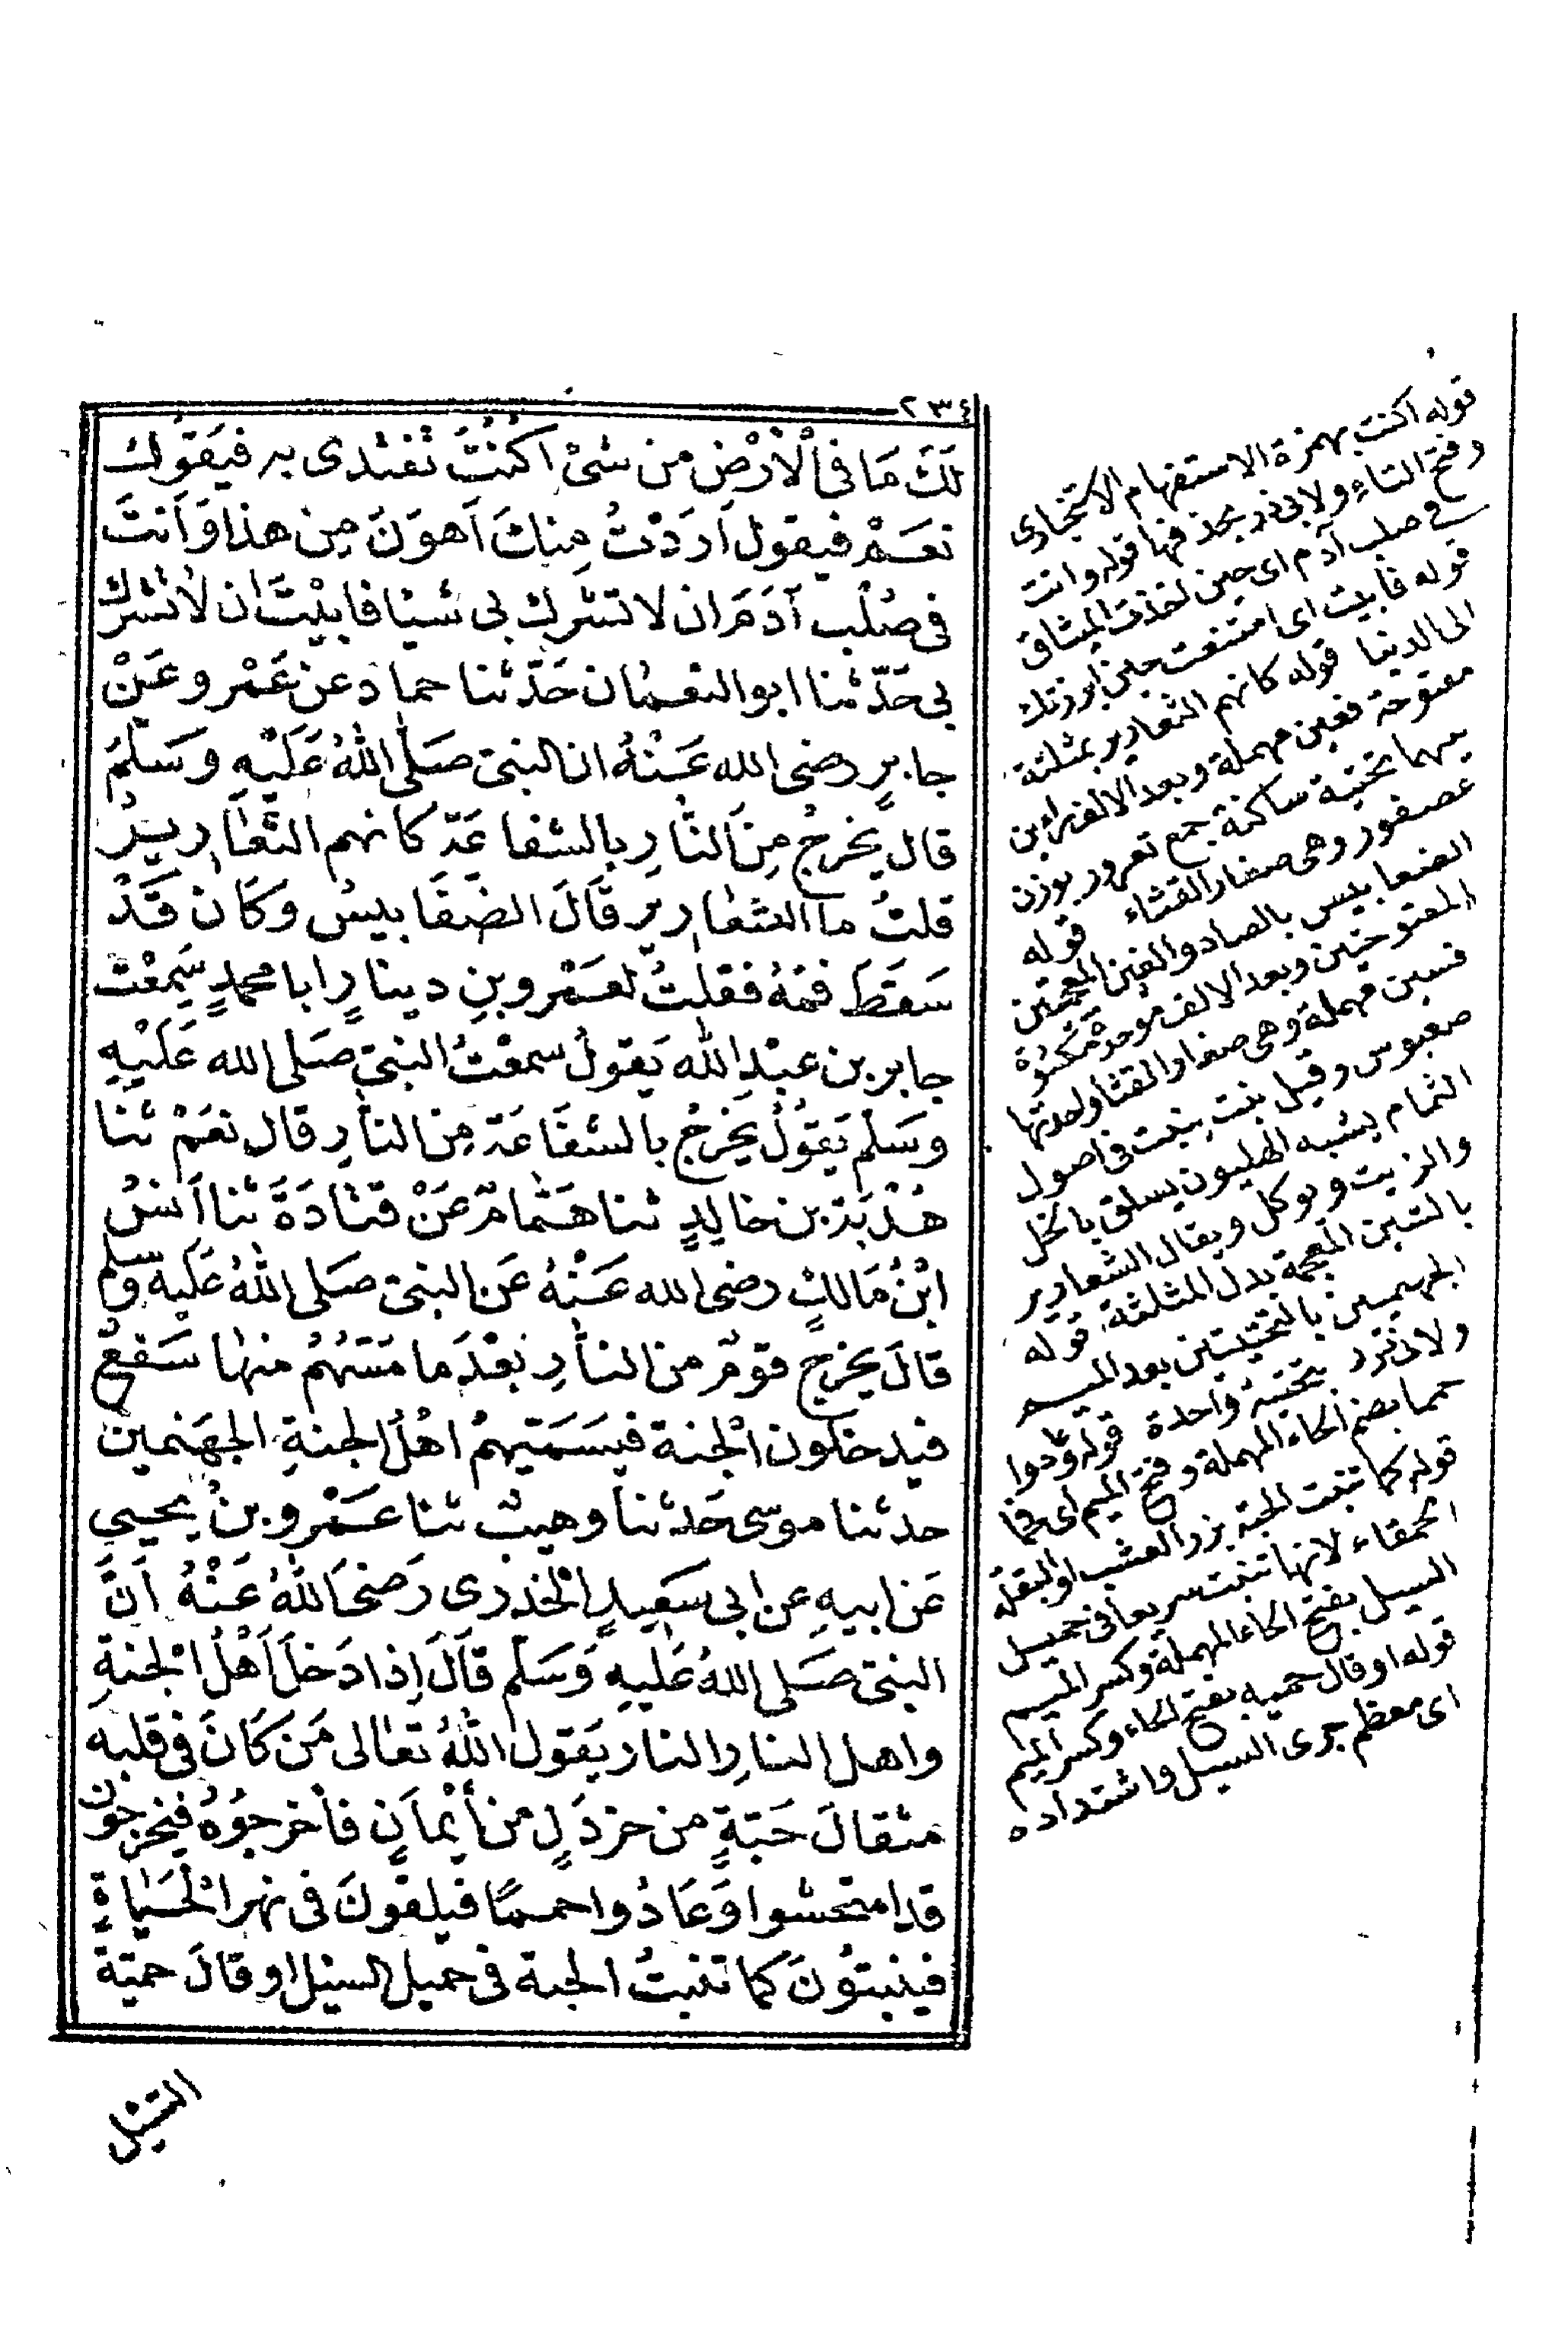 ٢٣٤
لَكَ مَا فِى الْاَرْضِ مِن شَىْءٍ اَكُنْتَ تَفْتَدِى بِهِ فَيَقُولُ
نَعَمْ فيقول اَرَدْتُ مِنكَ اَهوَنَ مِن هذا وَاَنتَ
فى صُلْبِ آدَمَ ان لا تشرك بى شيئا فابيْتَ ان لا تشرك
بى حَدّثنا ابو النعمان حَدّثنا حماد عن عَمْرو عَنْ
جابرٍ رضى الله عَنْهُ ان النبى صَلَّى اللهُ عَلَيْهِ وَسَلَّمَ
قال يَخرجُ مِنَ النَّارِ بالشفاعَة كانهم الثَّعَارِيرُ
قلتُ ما الثعارير قَالَ الضغَابيسُ وَكَان قَدْ
سَقَطَ فَمُهُ فقلتُ لعَمْرو بنِ دينارٍ ابا محمدٍ سَمِعْتَ
جابر بن عبْدِ الله يَقولُ سمعْتُ النبى صَلى الله عَلَيْهِ
وسَلم يَقُولُ يَخرجُ بالشفَاعَة مِن النارِ قال نعَمْ ثنا
هُدْبَة بن خالِدٍ ثنا هَمَّامٌ عَنْ قتادَةَ ثنا اَنَسُ
ابْنُ مَالكٍ رضى الله عَنْهُ عَن النبى صَلى اللهُ عَلَيْهِ وسلم
قالَ يخرج قومٌ من النارِ بَعْدَ ما مَسَّهُمْ منها سَفْعٌ
فيدخلون الْجنة فيُسَمّيهمْ اهْلُ الجنةِ الجهَنميين
حدثنا موسى حَدثنا وهيبٌ ثنا عَمْرو بنُ يحيى
عَن ابيهِ عن ابى سَعِيدٍ الْخدرى رَضىَ اللهُ عَنْهُ اَنَّ
النبى صَلى اللهُ عَليهِ وَسَلم قَالَ اِذا دَخلَ اَهْلُ الْجنةِ
واهل النارِ النار يَقول اللهُ تعَالى مَن كَانَ فى قلبه
مثقالَ حَبّةٍ من خردَلٍ من اِيْمانٍ فأَخرجُوهُ فيَخرجون
قد امتحشوا وَعَادُوا حممًا فيلقونَ فى نهر الْحَيَاةِ
فينبتُونَ كما تنبتُ الحبة فى حميل السيْل او قالَ حميّة
السَّيْل
قوله اكنت بهمزة الاستفهام الاستخبارى
وفتح التاء ولابى ذر بحذفها قوله وانت
فى صلب آدم اى حين اخذت الميثاق
قوله فابيت اى امتنعت حين ابرزتك
الى الدنيا قوله كانهم الثعارير بمثلثة
مفتوحة فعين مهملة وبعد الالف راء بن
بينهما تحتية ساكنة جمع ثعرور بوزن
عصفور وهى صغار القثاء قوله
الضغابيس بالضاد والغين المعجمتين
المفتوحتين وبعد الالف موحدة مكسورة
فسين مهملة وهى صغار القثا واحدتها
ضغبوس وقيل نبت ينبت فى اصول
الثمام يشبه الهليون يسلق بالخل
والزيت ويوكل ويقال الشعارير
بالشين المعجمة بدل المثلثة قوله
الجهنميين بالتحتيتين بعد الميم
ولابى ذر بتحتية واحدة قوله وعادوا
حمما بضم الحاء المهملة وفتح الميم اى فحما
قوله كما تنبت الحبة بزر العشب او البقلة
الحمقاء لانها تنبت سريعا فى حميل
السيل بفتح الحاء المهملة وكسر الميم
قوله او قال حمية بفتح الحاء وكسر الميم
اى معظم جرى السيل واشتداده